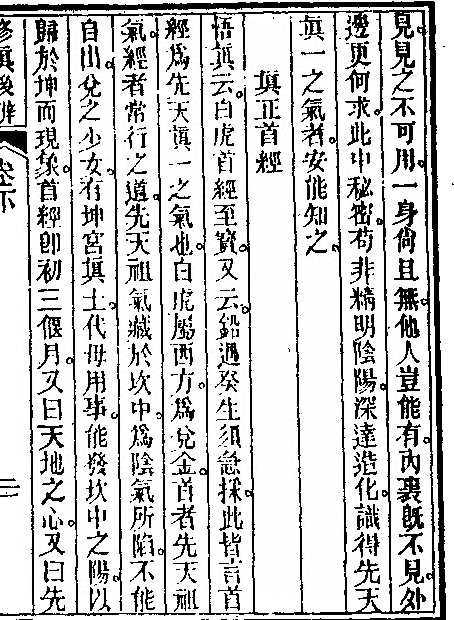 見見之不可用一身尙且無他人豈能有內裏旣不見外
邊更何求此中秘密苟非精明陰陽深達造化識得先天
眞一之氣者安能知之
眞正首經
悟眞云白虎首經至寶又云鉛遇癸生須急採此皆言首
經爲先天眞一之氣也白虎屬西方爲兌金首者先天祖
氣經者常行之道先天祖氣藏於坎中爲陰氣所陷不能
自出兌之少女有坤宮眞土代母用事能發坎中之陽以
歸於坤而現象首經卽初三偃月又曰天地之心又曰先
修眞後辨
卷下
二